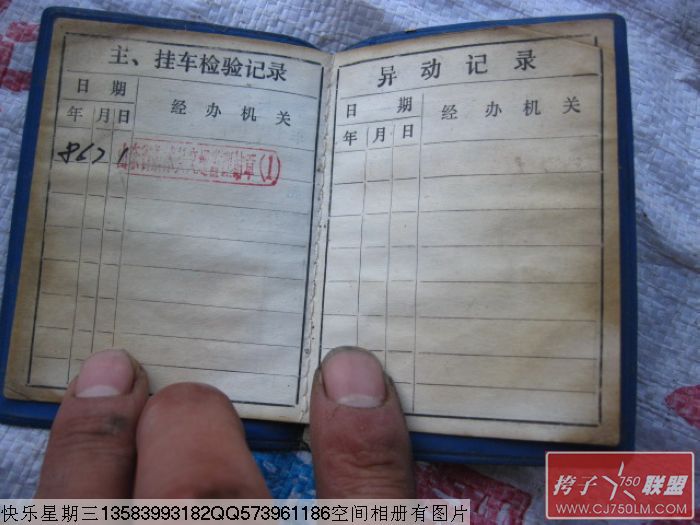 主、挂车检验记录
日 期
经 办 机 关
年 月 日
86 7 1
(1)
异 动 记 录
日 期
经 办 机 关
年 月 日
挎子 750 联盟
WWW.CJ750LM.COM
快乐星期三13583993182QQ573961186空间相册有图片